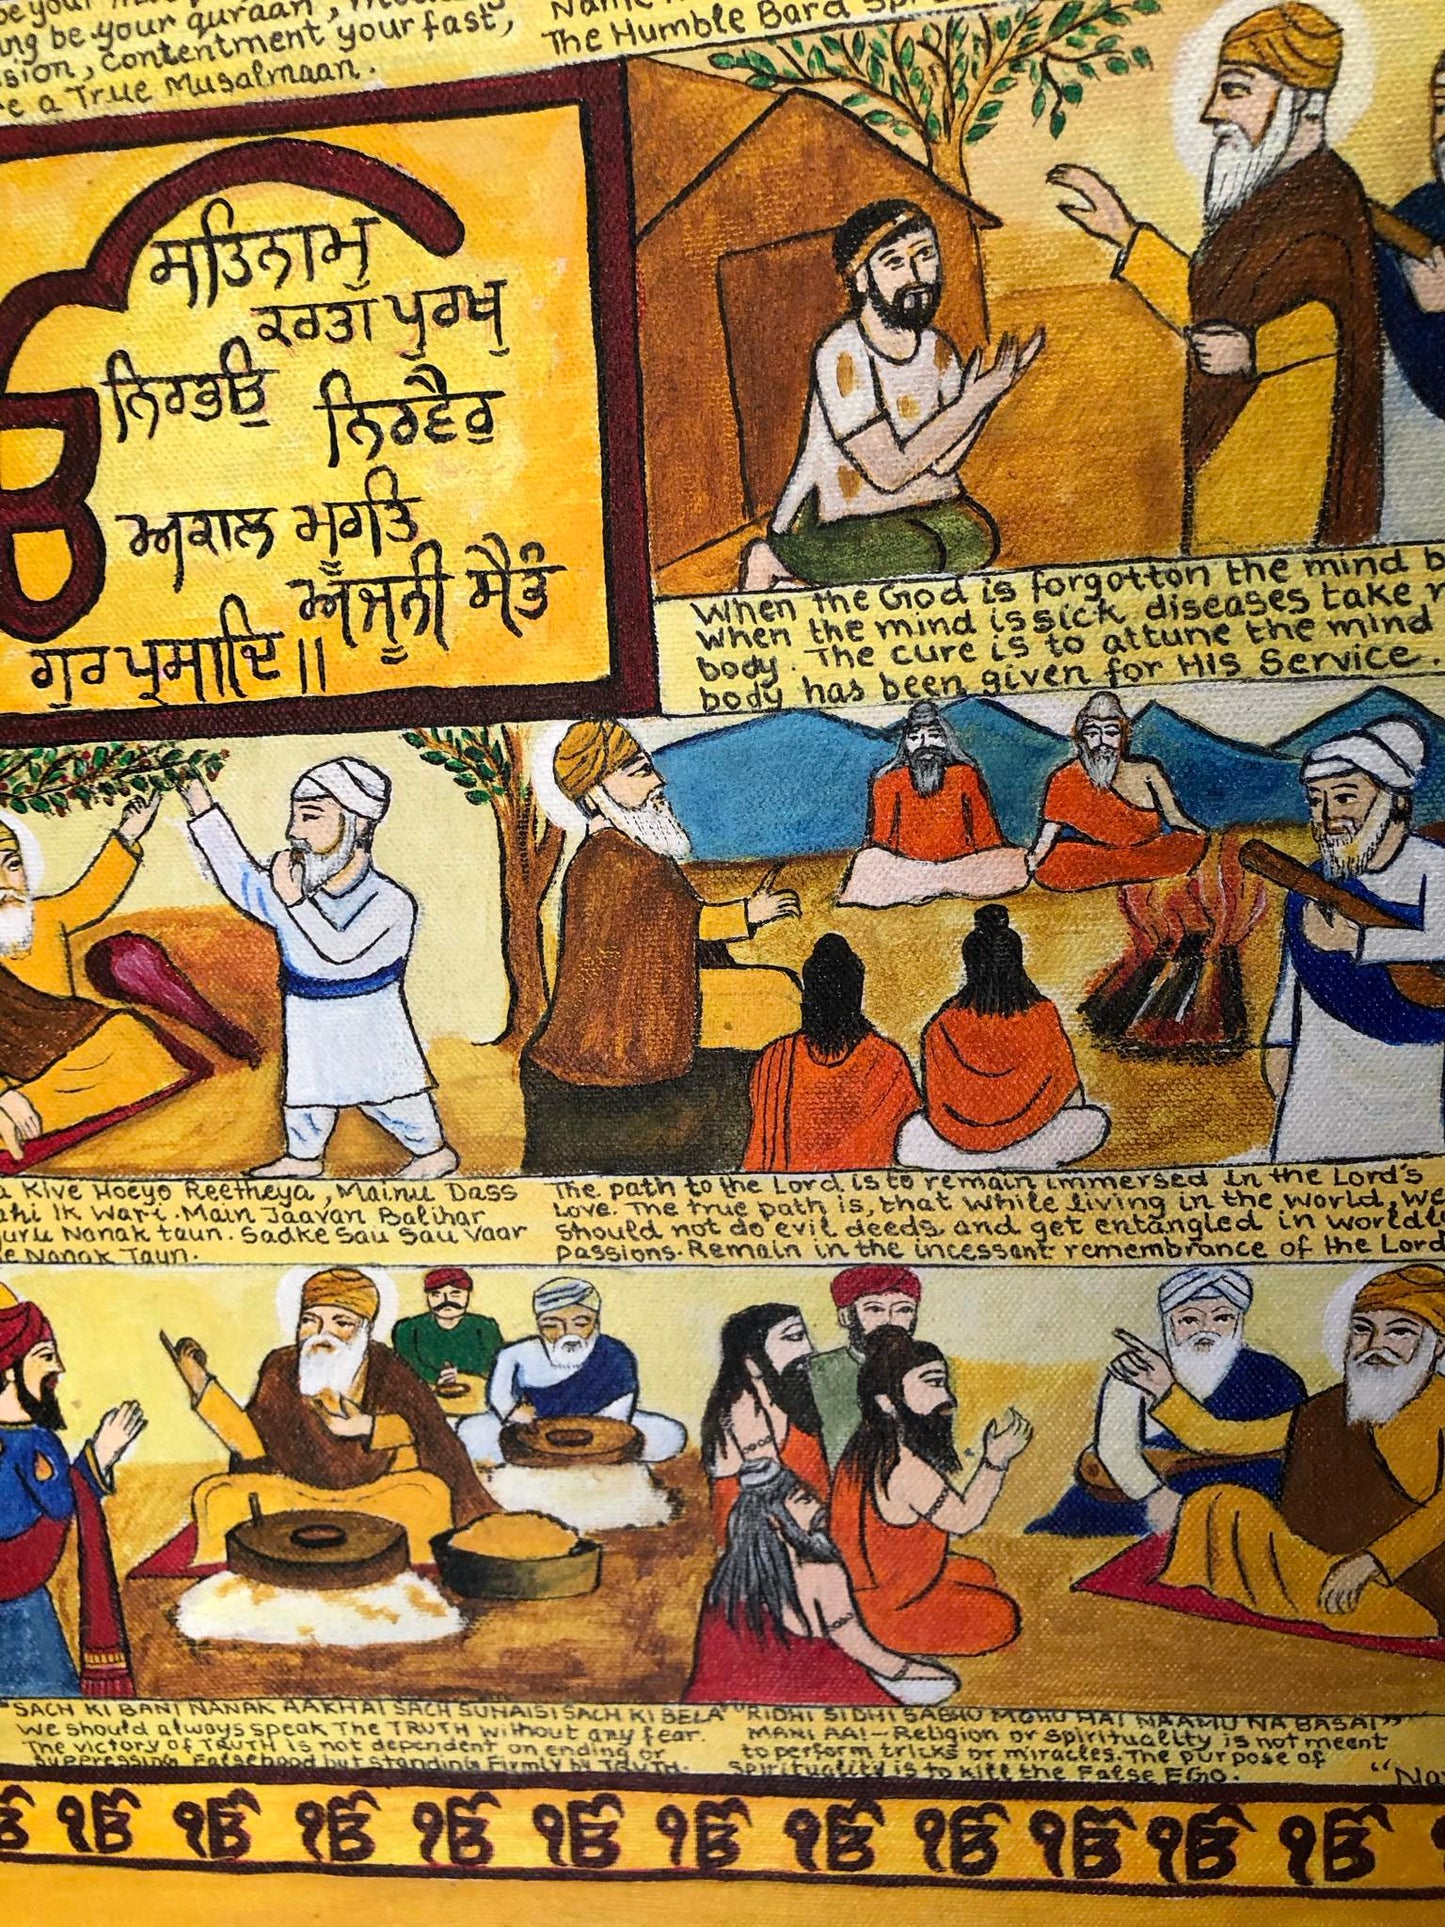 be your
ing be your quraan,
sion, contentment your fast,
e a True Musalmaan.
Name
The Humble Bard
ਸਤਿਨਾਮੁ
ਕਰਤਾ ਪੁਰਖੁ
ਨਿਰਭਉ
ਨਿਰਵੈਰੁ
ਅਕਾਲ ਮੂਰਤਿ
ਅਜੂਨੀ ਸੈਭੰ
ਗੁਰ ਪ੍ਰਸਾਦਿ॥
When the God is forgotton the mind b
When the mind is sick, diseases take r
body. The cure is to attune the mind
body has been given for His Service.
a Kive Hoeyo Reetheya, Mainu Dass
ahi Ik Wari. Main Jaavan Balihar
uru Nanak taun. Sadke Sau Sau Vaar
e Nanak Taun.
The path to the Lord is to remain immersed in the Lord's
Love. The true path is, that while living in the world, we
should not do evil deeds and get entangled in worldl
passions. Remain in the incessant remembrance of the Lord
"SACH KI BANI NANAK AAKHAI SACH SUNAISI SACH KI BELA"
We should always speak The TRUTH without any fear.
The victory of TRUTH is not dependent on ending or
suppressing Falsehood but standing Firmly by TRUTH.
"RIDHI SIDHI SABHU MOHU HAI NAAMU NA BASAI
MANI AAI — Religion or Spirituality is not meant
to perform tricks or miracles. The purpose of
Spirituality is to kill the False EGO.
ੴ ੴ ੴ ੴ ੴ ੴ ੴ ੴ ੴ ੴ ੴ ੴ